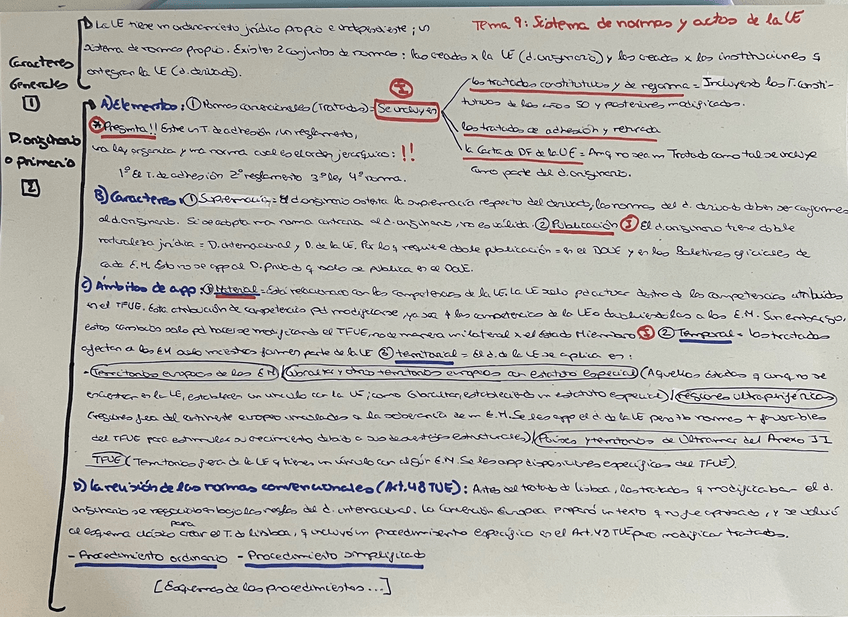 Tema 9: Sistema de normas y actos de la UE
Caracteres Generales 1
La UE tiene un ordenamiento jrídico propio e independiente; un
sistema de normas propio. Existen 2 conjuntos de normas: las creadas x la UE (d. originario) y las creadas x las instituciones q
integran la UE (d. derivado).
D. originario o primario 2
A) Elementos: ① Normas convencionales (Tratados) = Se incluyen
los tratados constitutivos y de reforma = Incluyendo los T. consti-
tutivos de los años 50 y posteriores modificados.
los tratados de adhesión y retirada
la Carta de DF de la UE = Anq no sea un Tratado como tal se incluye
como parte del d. originario.
* Pregunta!! Entre un T. de adhesión, un reglamento,
una ley orgánica y una norma cual es el orden jerárquico: !!
1º El T. de adhesión 2º reglamento 3º ley 4º norma.
B) Caracteres: ① Supremacía = El d. originario ostenta la supremacía respecto del derivado, las normas del d. derivado deben ser conformes
al d. originario. Si se adopta una norma contraria al d. originario, no es válida. ② Publicación I El d. originario tiene doble
naturaleza jrídica = D. internacional y D. de la UE. Por lo q requiere doble publicación = en el DOUE y en los Boletines oficiales de
cada E.M. Esto no se app al D. privado q solo se publica en el DOUE.
C) Ámbitos de app: ① Material = Está relacionado con las competencias de la UE. La UE solo pd actuar dentro de las competencias atribuidas
en el TFUE. Esta atribución de competencias pd modificarse, ya sea + las competencias de la UE o devolviendolas a los E.M. Sin embargo,
estos cambios solo pd hacerse modificando el TFUE, no de manera unilateral x el Estado Miembro I ② Temporal = los tratados
afectan a los EM solo mientras formen parte de la UE ③ territorial = El d. de la UE se aplica en:
- Territorios europeos de los EM / Gibraltar y otros territorios europeos con estatuto especial (Aquellos Estados q aunq no se
encuentran en la UE, establecen un vínculo con la UE; como Gibraltar, estableciendo un estatuto especial) / regiones ultraperiféricas
(regiones fuera del continente europeo vinculadas a la soberanía de un E.M. Se les app el d. de la UE pero tb normas + favorables
del TFUE para estimular su crecimiento debido a sus desventajas estructurales) / Países y territorios de Ultramar del Anexo II
TFUE (Territorios fuera de la UE q tienen un vínculo con algún E.M. Se les app disposiciones específicas del TFUE).
D) la revisión de las normas convencionales (Art. 48 TUE): Antes del tratado de Lisboa, los tratados q modificaban el d.
originario se negociaban bajo las reglas del d. internacional. La Convención Europea preparó un texto q no fue aprobado, y se volvió
al esquema clásico para crear el T. de Lisboa, q incluyó un procedimiento específico en el Art. 48 TUE para modificar tratados.
- Procedimiento ordinario - Procedimiento simplificado
[Esquemas de los procedimientos...]